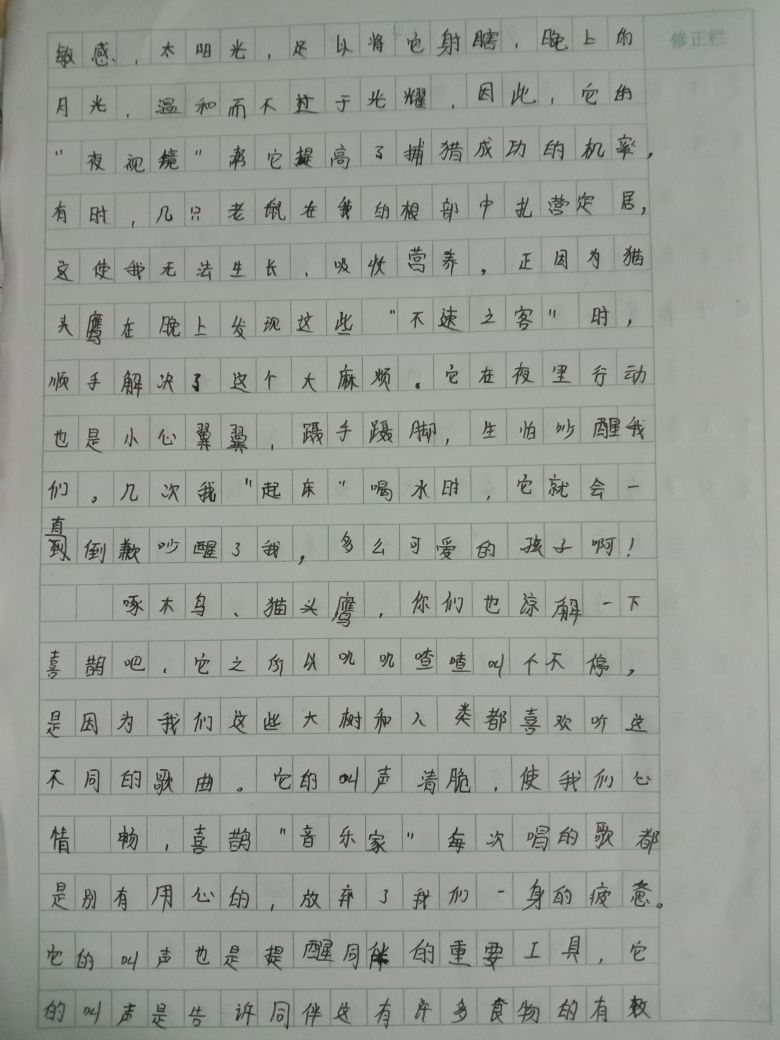 修正栏
敏感，太阳光，足以将它射瞎，晚上的
月光，温和而不过于光耀，因此，它的
“夜视镜”帮它提高了捕猎成功的机率，
有时，几只老鼠在我的根部中扎营定居，
这使我无法生长，吸收营养。正因为猫
头鹰在晚上发现这些“不速之客”时，
顺手解决了这个大麻烦。它在夜里行动
也是小心翼翼，蹑手蹑脚，生怕吵醒我
们。几次我“起床”喝水时，它就会一
直到倒歉吵醒了我，多么可爱的孩子啊！
啄木鸟、猫头鹰，你们也谅解一下
喜鹊吧，它之所以叽叽喳喳叫个不停，
是因为我们这些大树和人类都喜欢听这
不同的歌曲。它的叫声清脆，使我们心
情 畅，喜鹊“音乐家”每次唱的歌都
是别有用心的，放弃了我们一身的疲惫。
它的叫声也是提醒同伴的重要工具，它
的叫声是告诉同伴这有许多食物的有效